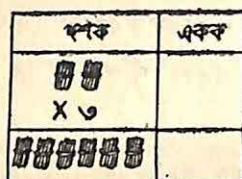 দশক একক
× ৩